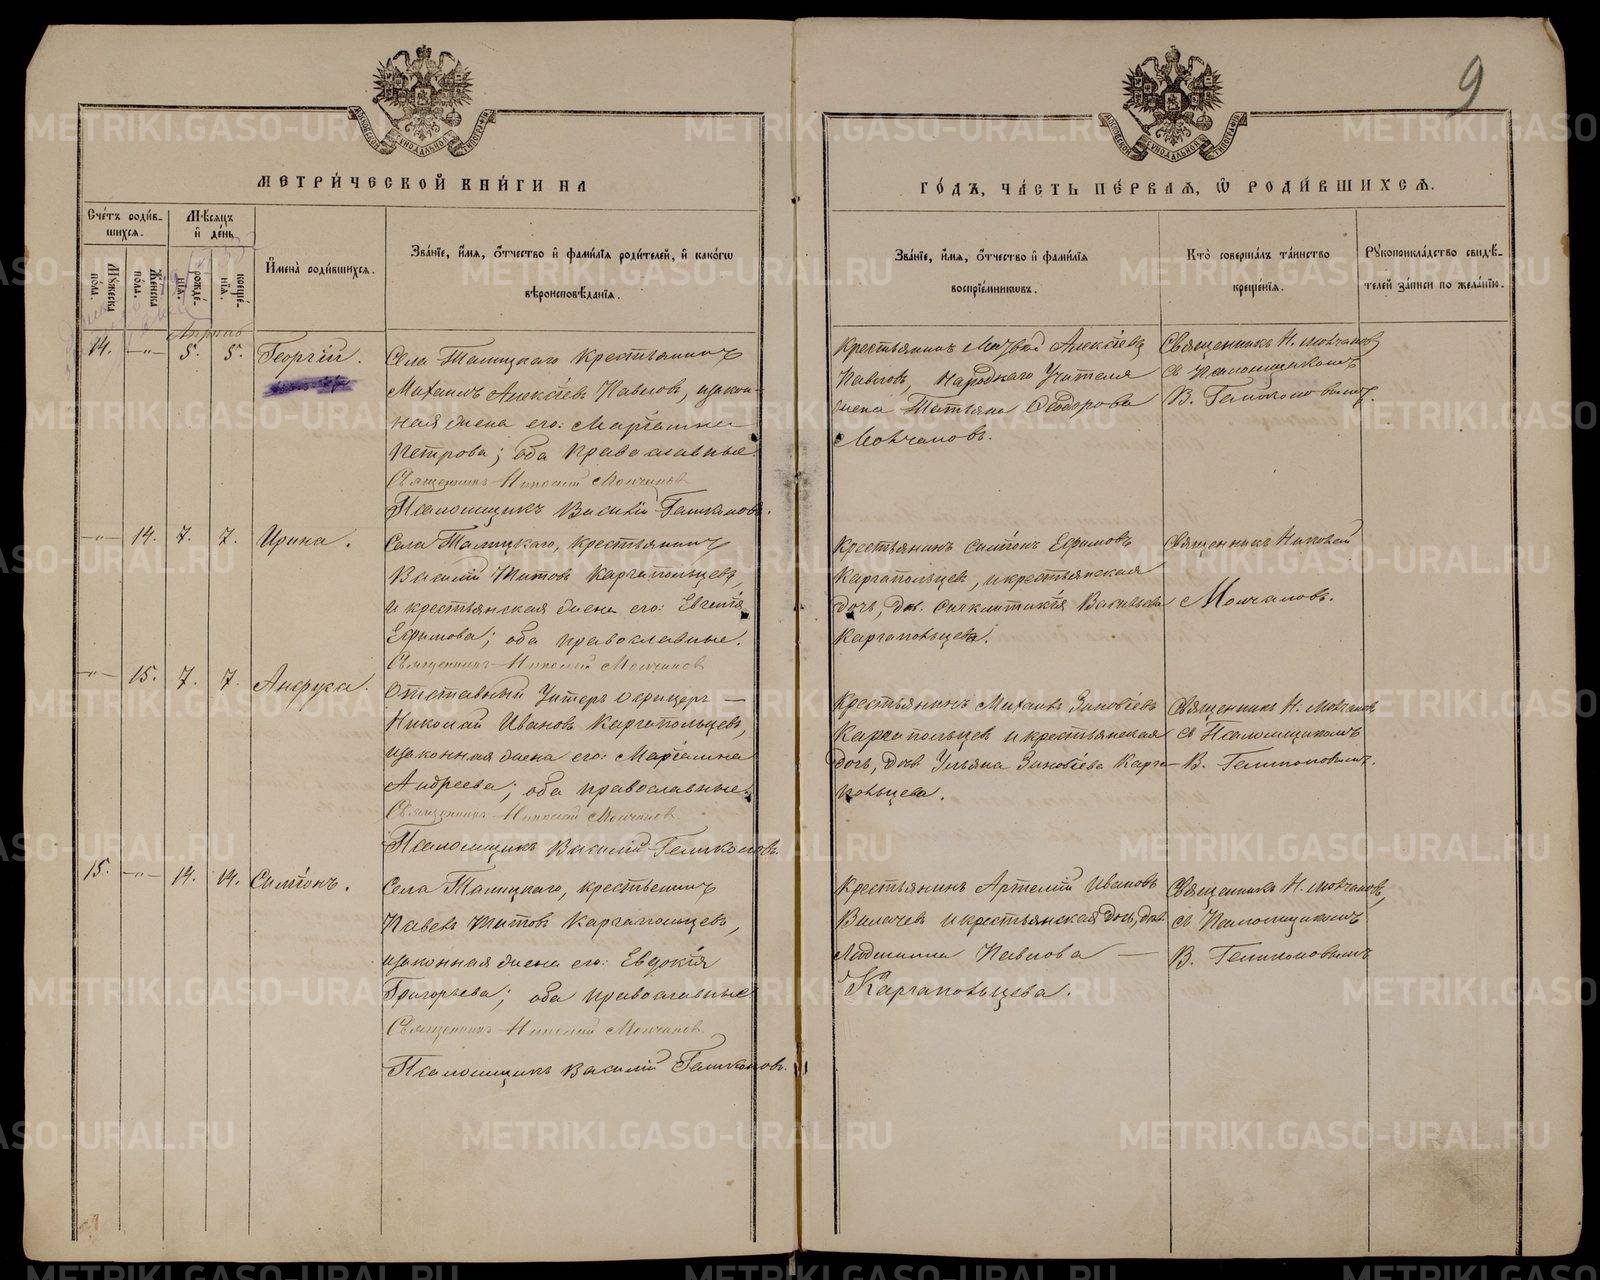 9
МЕТРИ́ЧЕСКОЙ КНИ́ГИ НА
ГО́ДЪ, ЧА́СТЬ ПЕ́РВАЯ, Ѡ РОДИ́ВШИХСѦ.
Сче́тъ роди́вшихся.
Му́жеска по́ла.
Же́нска по́ла.
Мѣ́сяцъ и҆ де́нь
рожде́нїя.
креще́нїя.
И҆мена̀ роди́вшихся.
Зва́нїе, и҆́мя, ѻ҆́тчество и҆ фами́лїя роди́телей, и҆ како́гѡ
вѣроисповѣ́данїя.
Зва́нїе, и҆́мя, ѻ҆́тчество и҆ фами́лїя
воспрїе́мниковъ.
Кто̀ соверша́лъ та́инство
креще́нїя.
Рꙋкоприкла́дство свидѣ́-
телей за́писи по жела́нїю.
Апрѣль
14. —"— 5. 5. Георгій.
Села Талицкаго крестьянинъ
Михаилъ Алексѣевъ Павловъ, изакон-
ная жена его: Маріамна
Петрова; оба православные.
Священникъ Николай Молчановъ
Псаломщикъ Василій
Крестьянинъ Алексѣевъ
Павловъ, народнаго учителя
жена Татьяна Ѳеодорова
Молчановъ.
Священникъ Н. Молчановъ
съ Псаломщикомъ
В.
—"— 14. 7. 7. Ирина.
Села Талицкаго, крестьянинъ
Василій Титовъ Каргапольцевъ,
и крестьянская жена его: Евгенія
Ефимова; оба православные.
Священникъ Николай Молчановъ
Крестьянинъ Симеонъ Ефимовъ
Каргапольцевъ, и крестьянская
дочь, дѣв. Синклитикія Васильева
Каргапольцева.
Священникъ Николай
Молчановъ.
—"— 15. 7. 7. Анфуса.
Отставный Унтеръ офицеръ —
Николай Ивановъ Каргапольцевъ,
изаконная жена его: Маріамна
Андреева; оба православные.
Священникъ Николай Молчановъ.
Псаломщикъ Василій
Крестьянинъ Михаилъ Зиновіевъ
Каргапольцевъ и крестьянская
дочь, дѣв. Ульяна Зиновіева Карга-
польцева.
Священникъ Н. Молчановъ
съ Псаломщикомъ
В.
15. —"— 14. 14. Симеонъ.
Села Талицкаго, крестьянинъ
Павелъ Титовъ Каргапольцевъ,
изаконная жена его: Евдокія
Григорьева; оба православные
Священникъ Николай Молчановъ.
Псаломщикъ Василій
Крестьянинъ Артемій Ивановъ
и крестьянская дочь, дѣв.
Павлова —
Каргапольцева.
Священникъ Н. Молчановъ,
съ Псаломщикомъ
В.
METRIKI.GASO-URAL.RU